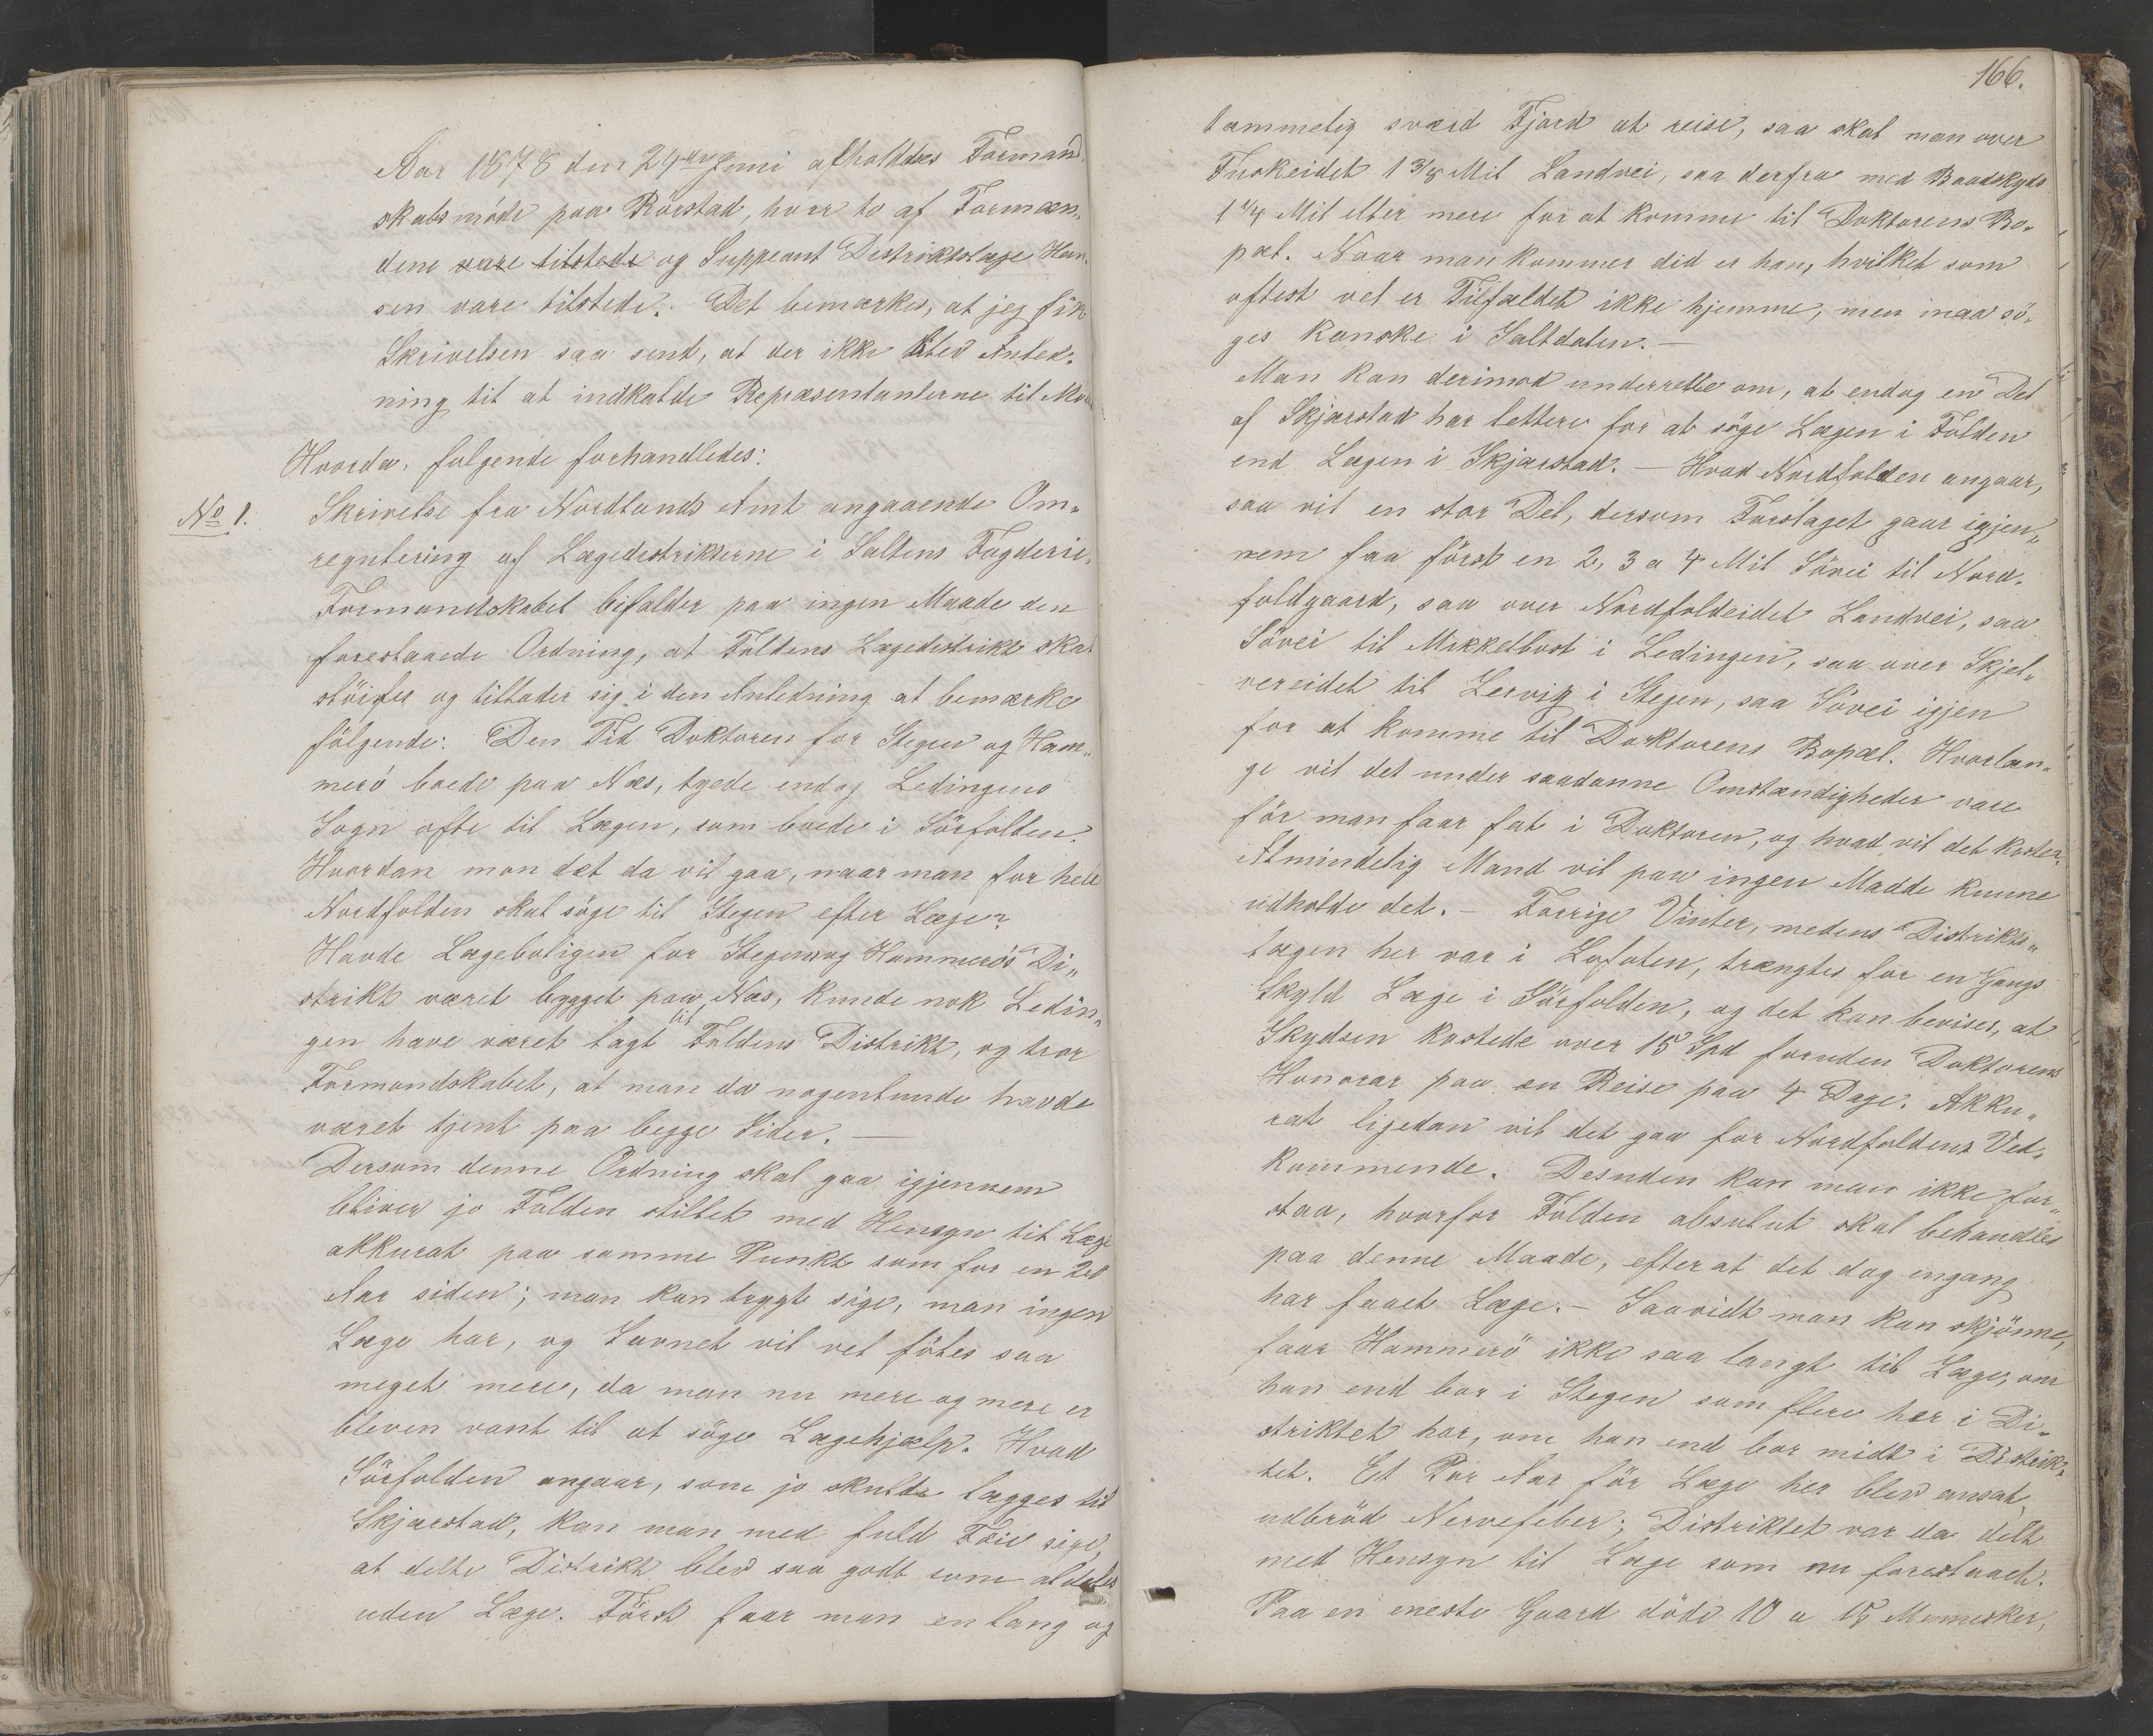 Aar 1878 den 29de Juni afholdtes Formand-
skabsmöde paa Rørstad, hvor to af Formæn-
dene vare tilstede og Suppeant Distriktslæge Han-
sen vare tilstede. Det bemærkes, at jeg fik
Skrivelsen saa sent, at der ikke blev Anled-
ning til at indkalde Repræsendanterne til Møde
Hvorda, følgende forhandledes:
No 1. Skrivelse fra Nordlands Amt angaaende Om-
regulering af Lægedistrikterne i Saltens Fogderie.
Formandskabet bifalder paa ingen Maade den
forestaaede Ordning, at Foldens Lægedistrikt skal
störfes og tillader sig i den Anledning at bemærke
fölgende: Den Tid Doktoren for Stegen og Ham-
merö boede paa Næs, tyede endog Ledingens
Sogn ofte til Lægen, som boede i Sörfolden.
Hvordan mon det da vil gaa, naar man for hele
Nordfolden skal söge til Stegen efter Læge?
Havde Lægeboligen for Stegen og Hammerö's Di-
strikt været bygget paa Næs, kunde nok Ledin-
gen have været lagt til Foldens Distrikt, og tror
Formandskabet, at man da nogenlunde havde
været tjent paa begge Sider. —
Dersom denne Ordning skal gaa igjennem
bliver jo Folden stillet med Hensyn til Læge
akkurat paa samme Punkt som for en 20
Aar siden; man kan trygt sige, man ingen
Læge har, og Savnet vil vel föles saa
meget mere, da man nu mere og mere er
bleven vant til at söge Lægehjælp. Hvad
Sörfolden angaar, som jo skulde lægges til
Skjærstad, kan man med fuld Föie sige,
at dette Distrikt blev saa godt som aldeles
uden Læge. Först faar man en lang og
166.
temmelig svær Fjord at reise, saa skal man over
Fuskeidet 1 3/8 Mil Landvei, saa derfra med Baadskyds
1 1/4 Mil eller mere for at komme til Doktorens Bo-
pæl. Naar man kommer did er han, hvilket som
oftest vel er Tilfældet ikke hjemme, men maa sö-
ges kanske i Saltdalen. —
Man kan derimod underrette om, at endog en Del
af Skjærstad har lettere for at söge Lægen i Folden
end Lægen i Skjærstad. — Hvad Nordfolden angaar,
saa vil en stor Del, dersom Forslaget gaar igjen-
nem faa först en 2, 3 a 4 Mil Sövei til Nord-
foldgaard, saa over Nordfoldeidet Landvei, saa
Sövei til Mikkelbost i Ledingen, saa over Skjel-
vereidet til Lervig i Stegen, saa Sövei igjen
for at komme til Doktorens Bopæl. Hvorlæn-
ge vil det under saadanne Omstændigheder vare
för man faar fat i Doktoren, og hvad vil det koste.
Almindelig Mand vil paa ingen Maade kunne
udholde det. — Forrige Vinter, medens Distrikts-
lægen her var i Lofoten, trængtes for en Gangs
Skyld Læge i Sörfolden, og det kan bevises, at
Skydsen kostede over 15 Spd foruden Doktorens
Honorar paa en Reise paa 4 Dage. Akku-
rat ligedan vil det gaa for Nordfoldens Ved-
kommende. Desuden kan man ikke for-
staa, hvorfor Folden absolut skal behandles
paa denne Maade, efterat det dog engang
har faaet Læge. — Saavidt man kan skjönne,
faar Hammerö ikke saa langt til Læge, om
han end bor i Stegen som flere her i Di-
striktet har, om han end bor midt i Distrik-
tet. Et Par Aar för Læge her blev ansat,
udbröd Nervefeber; Distriktet var da delt
med Hensyn til Læge som nu forestaaet.
Paa en eneste Gaard döde 10 a 15 Mennesker,